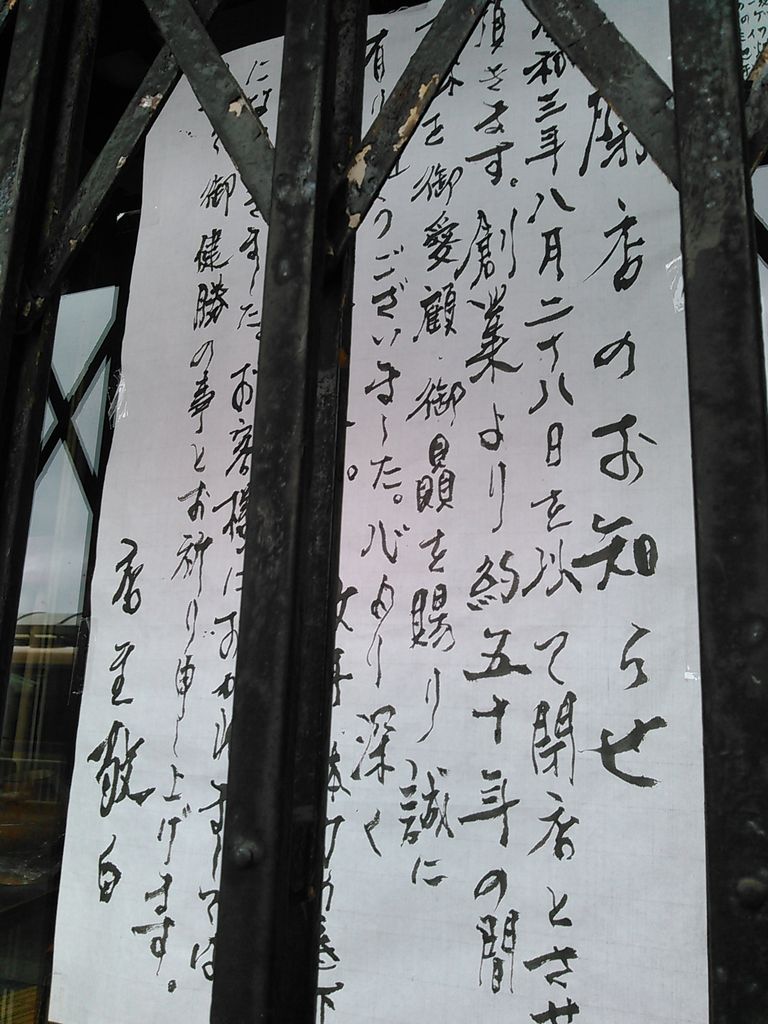 閉店のお知らせ
令和三年八月二十八日を以て閉店とさせ
頂きます。創業より約五十年の間
を御愛顧・御贔を賜り誠に
有りうございました。心より深く
になきました。お客様におかれましては
御健勝の事とお祈り申し上げます。
店主敬白